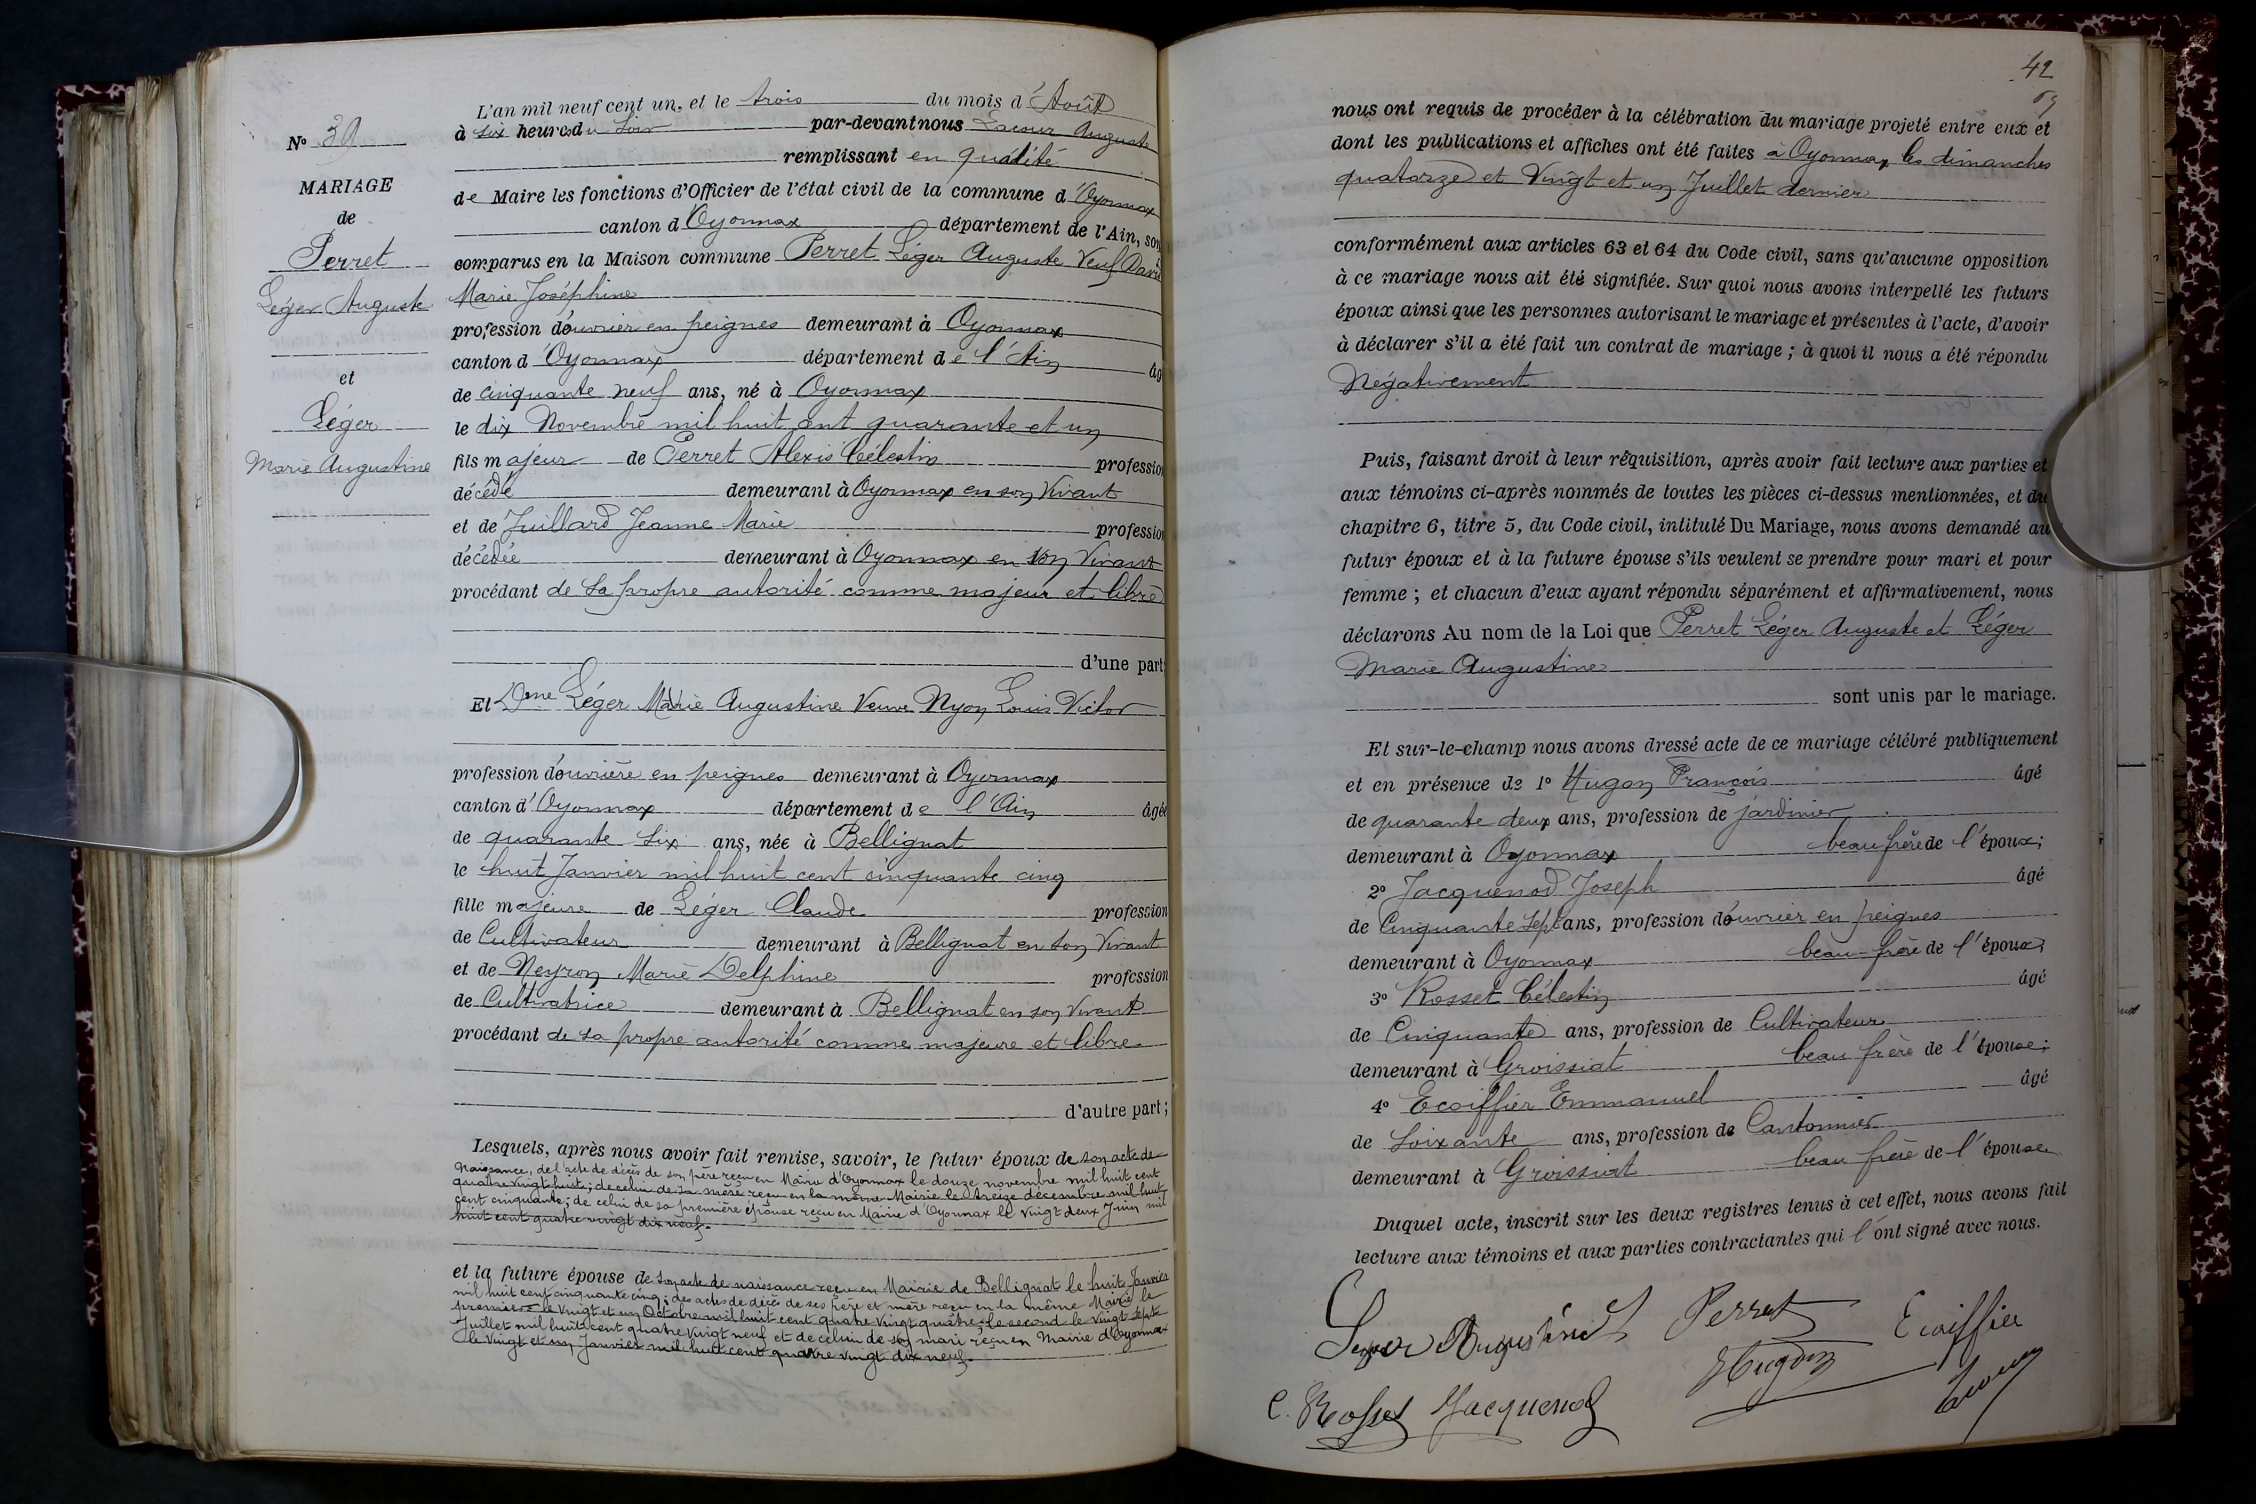 N° 39
MARIAGE
de
Perret
Léger Auguste
et
Léger
Marie Augustine
L'an mil neuf cent un, et le trois du mois d'Août
à six heures du Soir par-devant nous Lacour Auguste
remplissant en qualité
de Maire les fonctions d'Officier de l'état civil de la commune d'Oyonnax
canton d'Oyonnax département de l'Ain, son
comparus en la Maison commune Perret Léger Auguste Veuf David
Marie Joséphine
profession d'ouvrier en peignes demeurant à Oyonnax
canton d'Oyonnax département de l'Ain âg
de cinquante neuf ans, né à Oyonnax
le dix Novembre mil huit cent quarante et un
fils majeur de Perret Alexis Célestin profession
décédé demeurant à Oyonnax en son Vivant
et de Juillard Jeanne Marie profession
décédée demeurant à Oyonnax en son Vivant
procédant de sa propre autorité comme majeur et libre
d'une part;
Et Dme Léger Marie Augustine Veuve Nyon Louis Victor
profession d'ouvrière en peignes demeurant à Oyonnax
canton d'Oyonnax département de l'Ain âgée
de quarante six ans, née à Bellignat
le huit Janvier mil huit cent cinquante cinq
fille majeure de Léger Claude profession
de Cultivateur demeurant à Bellignat en son Vivant
et de Neyron Marie Delphine profession
de Cultivatrice demeurant à Bellignat en son Vivant
procédant de sa propre autorité comme majeure et libre
d'autre part;
Lesquels, après nous avoir fait remise, savoir, le futur époux de son acte de
naissance, de l'acte de décès de son père reçu en Mairie d'Oyonnax le douze novembre mil huit cent
quatre vingt huit; de celui de sa mère reçu en la même Mairie le treize décembre mil huit
cent cinquante; de celui de sa première épouse reçu en Mairie d'Oyonnax le Vingt deux Juin mil
huit cent quatre vingt dix neuf.
et la future épouse de son acte de naissance reçu en Mairie de Bellignat le huit Janvier
mil huit cent cinquante cinq; des actes de décès de ses père et mère reçu en la même Mairie le
premier le Vingt et un Octobre mil huit cent quatre Vingt quatre, le second le Vingt sept
Juillet mil huit cent quatre Vingt neuf et de celui de son mari reçu en Mairie d'Oyonnax
le Vingt et un Janvier mil huit cent quatre vingt dix neuf.
42
nous ont requis de procéder à la célébration du mariage projeté entre eux et
dont les publications et affiches ont été faites à Oyonnax les dimanches
quatorze et Vingt et un Juillet dernier
conformément aux articles 63 et 64 du Code civil, sans qu'aucune opposition
à ce mariage nous ait été signifiée. Sur quoi nous avons interpellé les futurs
époux ainsi que les personnes autorisant le mariage et présentes à l'acte, d'avoir
à déclarer s'il a été fait un contrat de mariage; à quoi il nous a été répondu
Négativement
Puis, faisant droit à leur réquisition, après avoir fait lecture aux parties et
aux témoins ci-après nommés de toutes les pièces ci-dessus mentionnées, et du
chapitre 6, titre 5, du Code civil, intitulé Du Mariage, nous avons demandé au
futur époux et à la future épouse s'ils veulent se prendre pour mari et pour
femme; et chacun d'eux ayant répondu séparément et affirmativement, nous
déclarons Au nom de la Loi que Perret Léger Auguste et Léger
Marie Augustine
sont unis par le mariage.
Et sur-le-champ nous avons dressé acte de ce mariage célébré publiquement
et en présence de 1° Hugon François âgé
de quarante deux ans, profession de jardinier
demeurant à Oyonnax beau frère de l'époux;
2° Jacquenod Joseph âgé
de Cinquante sept ans, profession d'ouvrier en peignes
demeurant à Oyonnax beau-frère de l'époux;
3° Rosset Célestin âgé
de Cinquante ans, profession de Cultivateur
demeurant à Groissiat beau frère de l'épouse;
4° Ecoiffier Emmanuel âgé
de Soixante ans, profession de Cantonnier
demeurant à Groissiat beau frère de l'épouse
Duquel acte, inscrit sur les deux registres tenus à cet effet, nous avons fait
lecture aux témoins et aux parties contractantes qui l'ont signé avec nous.
Leger Augustine Perret Ecoiffier
Hugon
C. Rosset Jacquenod Lacour